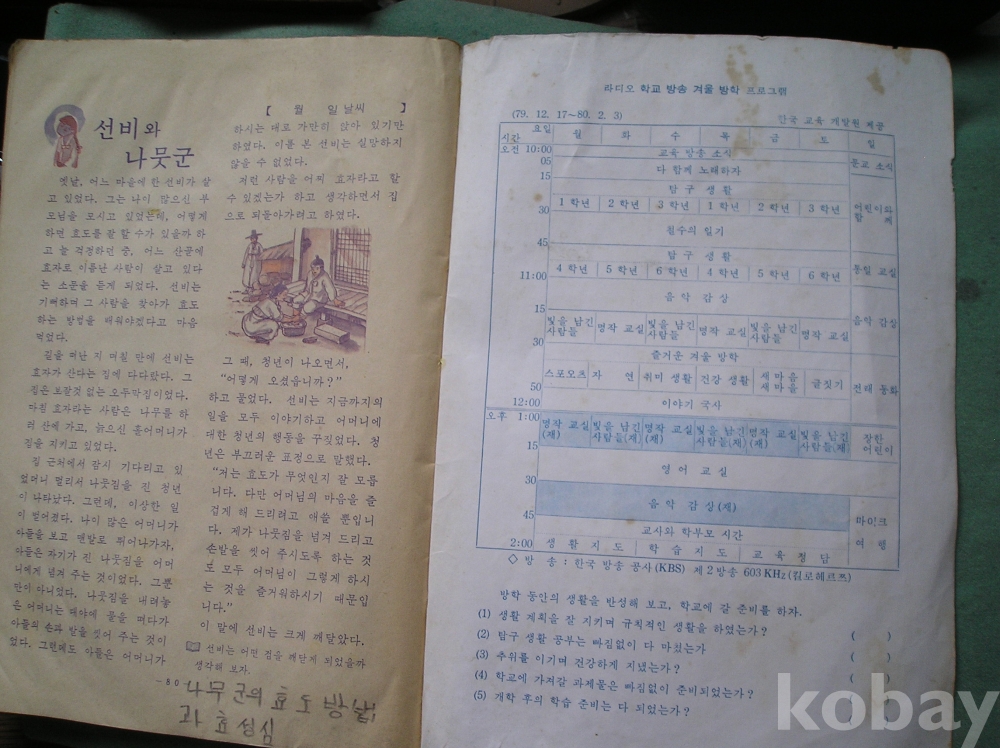 【 월 일 날씨 】
선비와
나뭇군
옛날, 어느 마을에 한 선비가 살
고 있었다. 그는 나이 많으신 부
모님을 모시고 있었는데, 어떻게
하면 효도를 잘 할 수가 있을까 하
고 늘 걱정하던 중, 어느 산골에
효자로 이름난 사람이 살고 있다
는 소문을 듣게 되었다. 선비는
기뻐하며 그 사람을 찾아가 효도
하는 방법을 배워야겠다고 마음
먹었다.
길을 떠난 지 며칠 만에 선비는
효자가 산다는 집에 다다랐다. 그
집은 보잘것 없는 오두막집이었다.
마침 효자라는 사람은 나무를 하
러 산에 가고, 늙으신 홀어머니가
집을 지키고 있었다.
집 근처에서 잠시 기다리고 있
었더니 멀리서 나뭇짐을 진 청년
이 나타났다. 그런데, 이상한 일
이 벌어졌다. 나이 많은 어머니가
아들을 보고 맨발로 뛰어나가자,
아들은 자기가 진 나뭇짐을 어머
니에게 넘겨 주는 것이었다. 그뿐
만이 아니었다. 나뭇짐을 내려놓
은 어머니는 대야에 물을 떠다가
아들의 손과 발을 씻어 주는 것이
었다. 그런데도 아들은 어머니가
하시는 대로 가만히 앉아 있기만
하였다. 이를 본 선비는 실망하지
않을 수 없었다.
저런 사람을 어찌 효자라고 할
수 있겠는가 하고 생각하면서 집
으로 되돌아가려고 하였다.
그 때, 청년이 나오면서,
“어떻게 오셨읍니까?”
하고 물었다. 선비는 지금까지의
일을 모두 이야기하고 어머니에
대한 청년의 행동을 꾸짖었다. 청
년은 부끄러운 표정으로 말했다.
“저는 효도가 무엇인지 잘 모릅
니다. 다만 어머님의 마음을 즐
겁게 해 드리려고 애쓸 뿐입니
다. 제가 나뭇짐을 넘겨 드리고
손발을 씻어 주시도록 하는 것
도 모두 어머님이 그렇게 하시
는 것을 즐거워하시기 때문입
니다.”
이 말에 선비는 크게 깨달았다.
선비는 어떤 점을 깨닫게 되었을까
생각해 보자.
-80-
나무군의 효도 방법
과 효성심
라디오 학교 방송 겨울 방학 프로그램
(79. 12. 17~80. 2. 3)
한국 교육 개발원 제공
시간 요일 월 화 수 목 금 토 일
오전 10:00 교육 방송 소식
05 다 함께 노래하자 문교 소식
15 탐구 생활
1학년 2학년 3학년 1학년 2학년 3학년 어린이와
30 함께
철수의 일기
45 탐구 생활
11:00 4학년 5학년 6학년 4학년 5학년 6학년 통일 교실
음악 감상
15 빛을 남긴 사람들 명작 교실 빛을 남긴 사람들 명작 교실 빛을 남긴 사람들 명작 교실 음악 감상
30 즐거운 겨울 방학
스포오츠 자연 취미 생활 건강 생활 새마음 새마음 글짓기 전래 동화
50
12:00 이야기 국사
오후 1:00 명작 교실(재) 빛을 남긴 사람들(재) 명작 교실(재) 빛을 남긴 사람들(재) 명작 교실(재) 빛을 남긴 사람들(재) 장한 어린이
15
영어 교실
30
음악 감상(재)
45 마이크
교사와 학부모 시간 여행
2:00 생활지도 학습지도 교육청담
◇ 방송 : 한국 방송 공사(KBS) 제2방송 603KHz(킬로헤르쯔)
방학 동안의 생활을 반성해 보고, 학교에 갈 준비를 하자.
(1) 생활 계획을 잘 지키며 규칙적인 생활을 하였는가? ( )
(2) 탐구 생활 공부는 빠짐없이 다 마쳤는가 ( )
(3) 추위를 이기며 건강하게 지냈는가? ( )
(4) 학교에 가져갈 과제물은 빠짐없이 준비되었는가? ( )
(5) 개학 후의 학습 준비는 다 되었는가? ( )
kobay